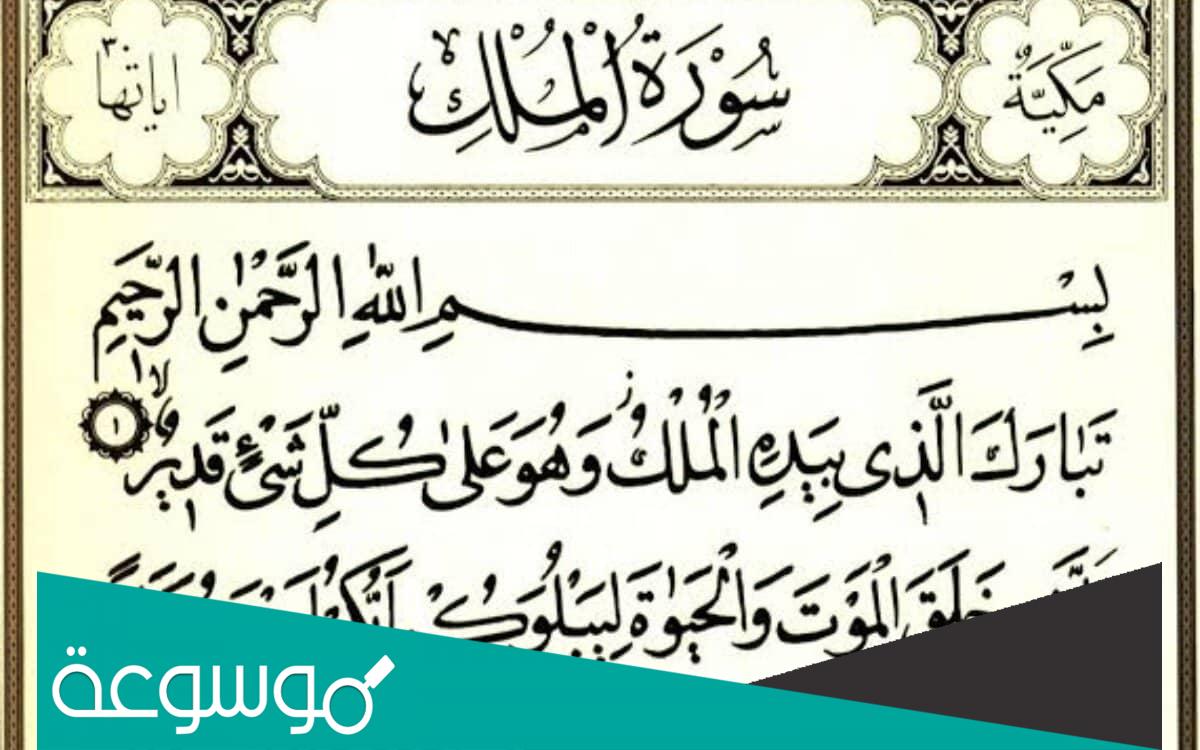 مَكِّيَّةٌ
سُوْرَةُ الْمُلْكِ
اياتها ٣٠
بِسْمِ اللّٰهِ الرَّحْمٰنِ الرَّحِيمِ
تَبَارَكَ الَّذِى بِيَدِهِ الْمُلْكُ وَهُوَ عَلٰى كُلِّ شَىْءٍ قَدِيرٌ ١
خَلَقَ الْمَوْتَ وَالْحَيٰوةَ لِيَبْلُوَكُمْ
موسوعة